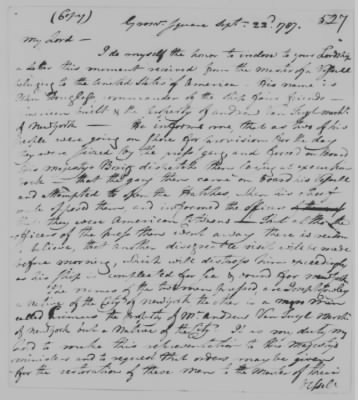 (Copy)
527
Grosv. Square Sept. 22d 1787.
My Lord —
I do myself the honor to inclose to your Lordship
a letter this moment received from the Master of a Vessell
belonging to the United States of America — His name is
commander of the ship Four Friends —
American built & the property of Andrew Van Tuyl Mercht
of New York — He informs me, that as two of his
People were going on shore for provisions for the day
they were seized by the press gang and carried on board
his Majestys Brig
— that they then came on Board his Vessell
and attempted to open the Hatches, when his chief
mate opposed them, and informed the officer
they were American Citizens — Tho' all the
officers of the press then went away there is reason
to believe, that another disagreeable visit will be made
before morning, which will distress him exceedingly
as his ship is compleated for sea & bound for New York
The names of the two men pressed are Joseph
a native of the City of New York the other is a man
called Primus the property of Mr. Andrew Van Tuyl Mercht
of New York but a Native of the City. It is my duty my
Lord to make this representation to his Majestys
ministers and to request that orders, may be given
for the restoration of these men to the Master of their
Vessel